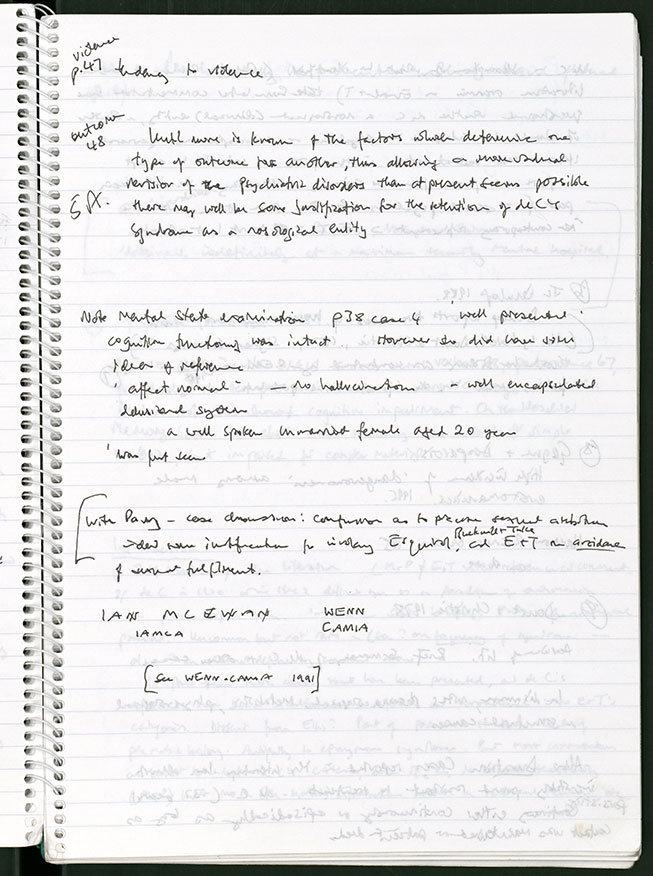 violence
p.47 tendency to violence
outcome
48
Until more is known of the factors which determine one
type of outcome from another, thus allowing a more radical
revision of the psychiatric disorders than at present seems possible
there may well be some justification for the retention of de C's
Syndrome as a nosological entity
Note Mental State examination p38 case 4 'well presented'
cognitive functioning was intact. However she did have
ideas of reference
'affect normal' — no hallucinations - well encapsulated
delusional system
a well spoken unmarried female aged 20 years
was first seen
with Parry - case discussion: confusion as to precise sexual ambition
Bucknill + Tuke
Esquirol, and E+T in avoidance
of sexual fulfilment.
IAN MCEWAN WENN
IAMCA CAMIA
[See WENN-CAMIA 1991]